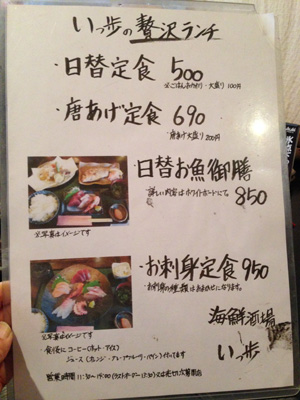 いっ歩の贅沢ランチ
・日替定食 500
※ごはんおかわり・大盛り100円
・唐あげ定食 690
唐あげ大盛り200円
・日替お魚御膳
詳しい内容はホワイトボードにて。 850
※写真はイメージです
・お刺身定食 950
お刺身の種類はおまかせになります。
※写真はイメージです
海鮮酒場
いっ歩
・食後にコーヒー(ホット・アイス)
ジュース(オレンジ・アップル・
営業時間 11:30〜14:00(ラストオーダー13:30)又は売り切れ次第閉店